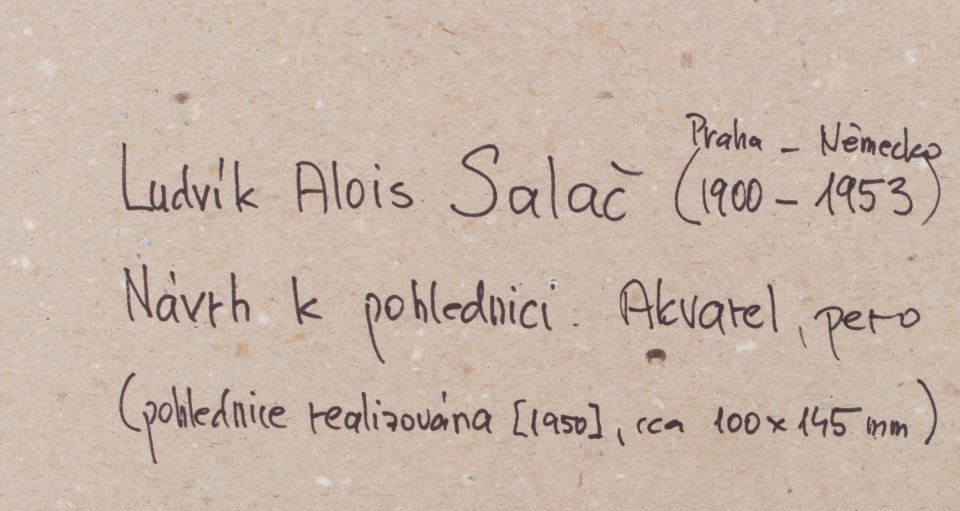 Praha - Německo
Ludvík Alois Salač (1900 - 1953)
Návrh k pohlednici. Akvarel, pero
(pohlednice realizována [1950], cca 100 x 145 mm)